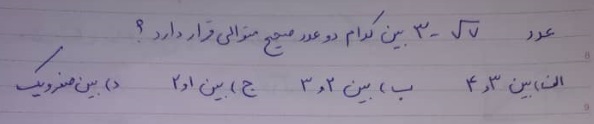 عدد √۷ - ۳ بین کدام دو عدد صحیح متوالی قرار دارد ؟
الف) بین ۳ و ۴ ب) بین ۲ و ۳ ج) بین ۱ و ۲ د) بین صفر و یک